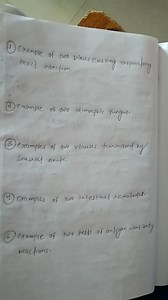 ① example of two virus causing respiratory
tract infection.
② example of two dimorphic fungus.
③ examples of two viruses transmitted by
sexual route.
④ examples of two intestinal nematodes.
⑤ example of two tests of antigen antibody
reactions.